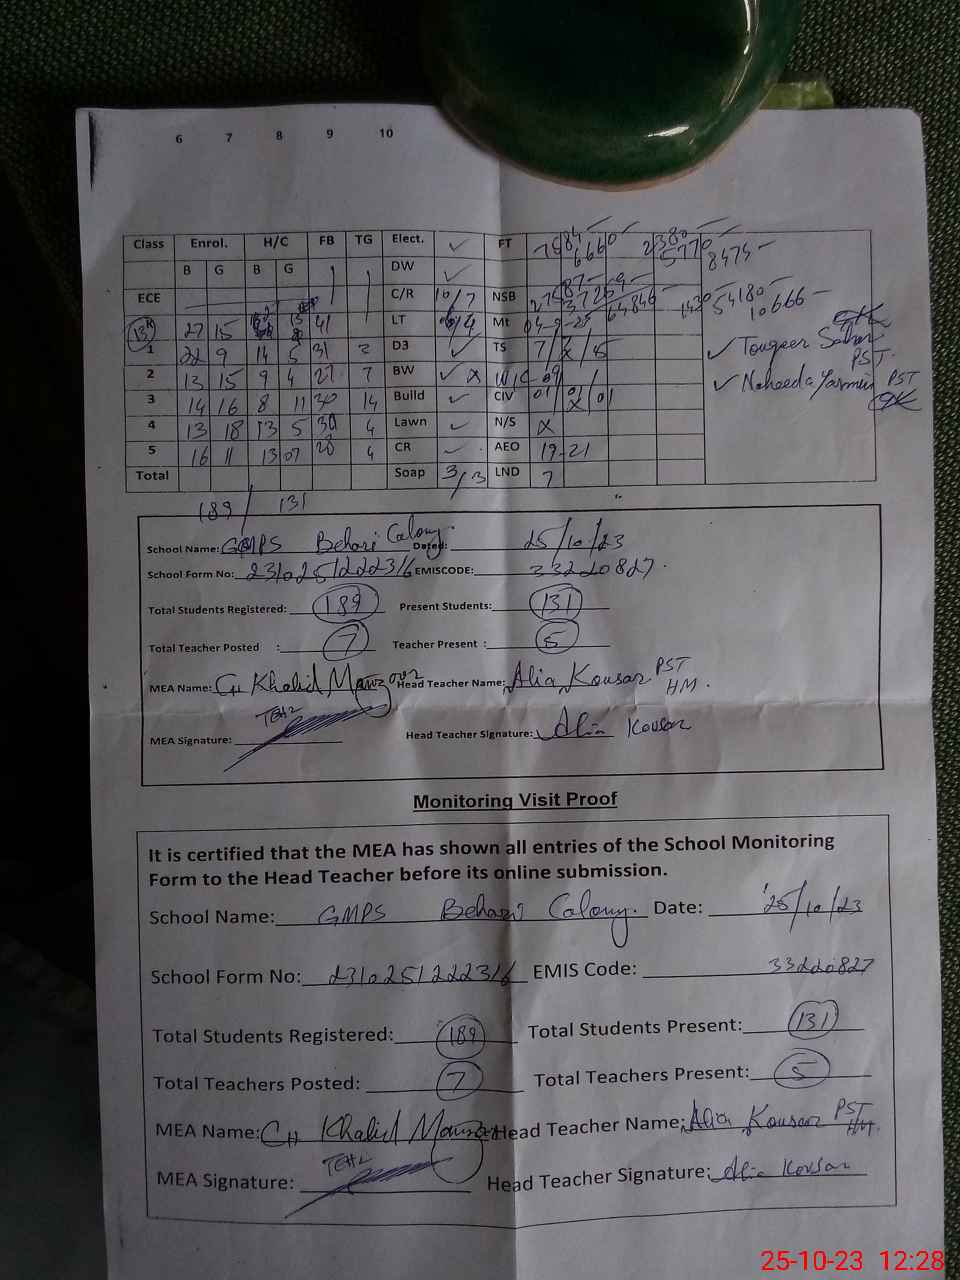 6 7 8 9 10
Class Enrol. H/C FB TG Elect. ✓ FT 7584 - 6660 - 2380 - 5770 - 8474 -
B G B G DW ✓
ECE C/R 10/7 NSB 54180 10666 -
13K 27 15 41 LT Mt 04-9-23
1 22 9 14 5 31 2 D3 ✓ TS 7/x/5 ✓ Touqeer PST
2 13 15 9 4 27 7 BW ✓ x 09 ✓ Naheeda Yasmin PST
3 14 16 8 11 30 14 Build ✓ CIV 01/01/01
4 13 18 13 5 30 4 Lawn ✓ N/S x
5 16 11 13 07 28 4 CR ✓ AEO 19-21
Total Soap 3/3 LND 7
189 / 131
School Name: GMPS Behari Colony. Dated: 25/10/23
School Form No: 2310251222316 EMISCODE: 33220827.
Total Students Registered: 189 Present Students: 131
Total Teacher Posted : 7 Teacher Present : 5
MEA Name: CH Khalid Manzoor Head Teacher Name: Alia Kousar PST HM.
MEA Signature: Head Teacher Signature: Alia Kousar
Monitoring Visit Proof
It is certified that the MEA has shown all entries of the School Monitoring
Form to the Head Teacher before its online submission.
School Name: GMPS Behari Colony. Date: 25/10/23
School Form No: 2310251222316 EMIS Code: 33220827
Total Students Registered: 189 Total Students Present: 131
Total Teachers Posted: 7 Total Teachers Present: 5
MEA Name: CH Khalid Manzoor Head Teacher Name: Alia Kousar PST HM.
MEA Signature: Head Teacher Signature: Alia Kousar
25-10-23 12:28